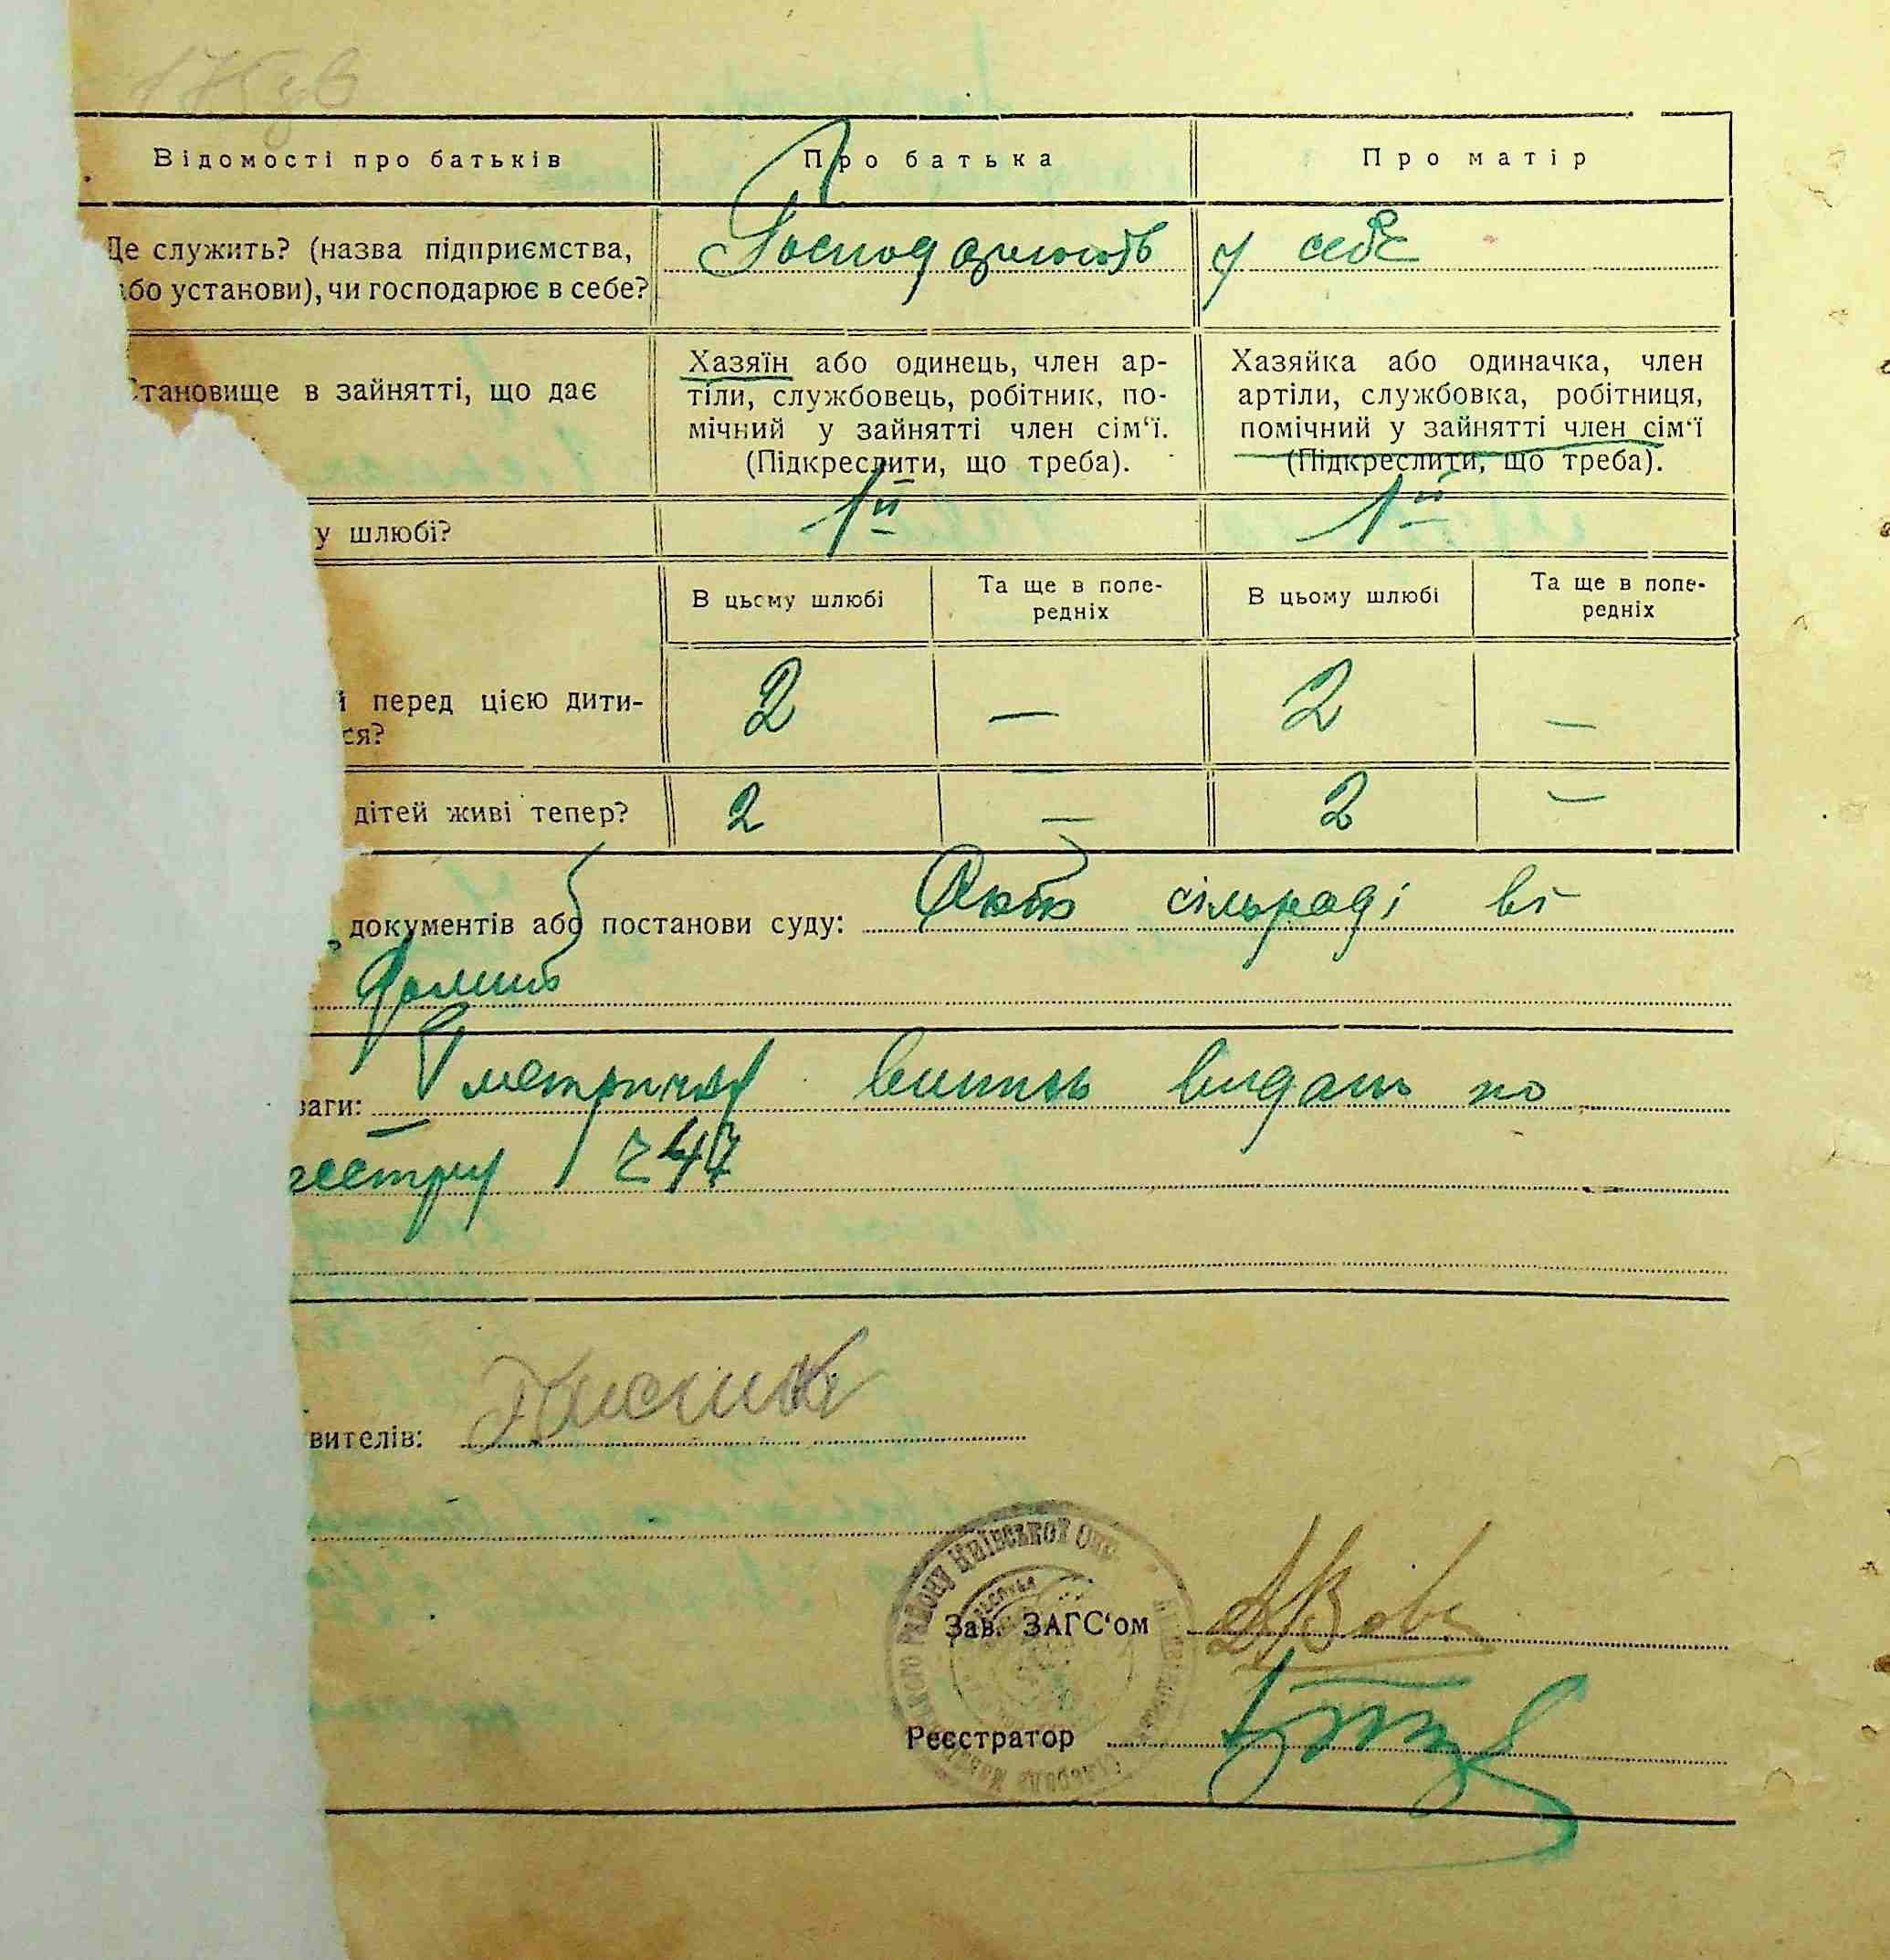 Відомості про батьків
Про батька
Про матір
Де служить? (назва підприємства,
або установи), чи господарює в себе?
Господарюють у себе
Становище в зайнятті, що дає
Хазяїн або одинець, член ар-
тіли, службовець, робітник, по-
мічний у зайнятті член сім‘ї.
(Підкреслити, що треба).
Хазяйка або одиначка, член
артіли, службовка, робітниця,
помічний у зайнятті член сім‘ї
(Підкреслити, що треба).
у шлюбі?
1й
1й
В цьому шлюбі
Та ще в попе-
редніх
В цьому шлюбі
Та ще в попе-
редніх
й перед цією дити-
ся?
2 — 2 —
дітей живі тепер?
2 — 2 —
документів або постанови суду: сільраді
ваги: витяг видано по
реєстру
вителів:
РАЙОНУ КИЇВСЬКОЇ ОКР
Зав. ЗАГС‘ом
Реєстратор